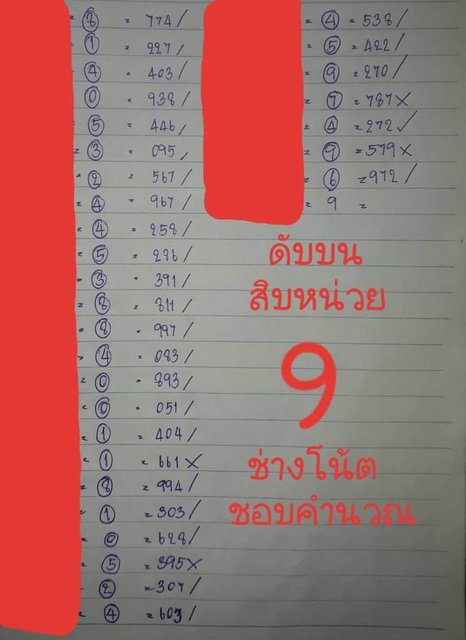 = ⑧ = 774 /
= ① = 227 /
= ④ = 403 /
= ⓪ = 938 /
= ⑤ = 446 /
= ③ = 095 /
= ② = 567 /
= ④ = 967 /
= ④ = 258 /
= ⑤ = 226 /
= ③ = 391 /
= ⑧ = 811 /
= ⑧ = 997 /
= ④ = 083 /
= ⓪ = 893 /
= ⓪ = 051 /
= ① = 404 /
= ① = 661 ×
= ⑧ = 994 /
= ① = 303 /
= ⓪ = 628 /
= ⑤ = 395 ×
= ② = 307 /
= ④ = 603 /
= ④ = 538 /
= ⑤ = 422 /
= ⑨ = 270 /
= ⑦ = 787 ×
= ④ = 272 ✓
= ⑨ = 579 ×
= ⑥ = 972 /
= 9 =
ดับบน
สิบหน่วย
9
ช่างโน้ต
ชอบคำนวณ